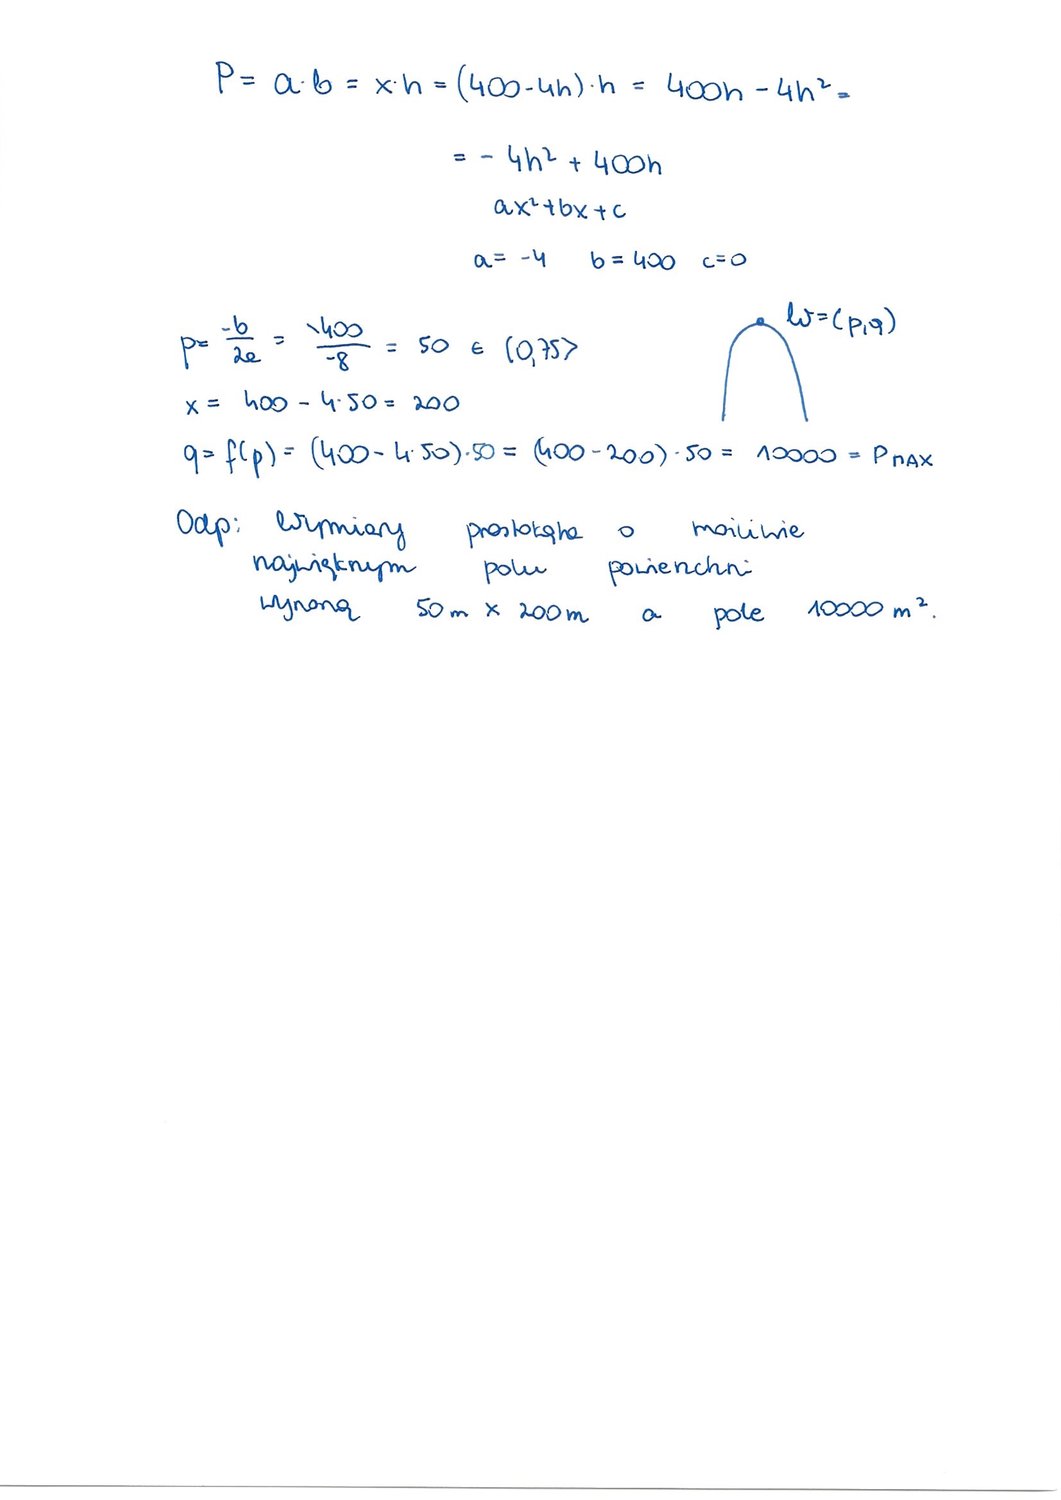 P = a·b = x·h = (400-4h)·h = 400h - 4h² =
= - 4h² + 400h
ax²+bx+c
a= -4 b = 400 c=0
W=(p,q)
p= -b/2a = -400/-8 = 50 ∈ (0,75>
x = 400 - 4·50 = 200
q= f(p) = (400 - 4·50)·50 = (400-200)·50 = 10000 = PMAX
Odp: Wymiary prostokąta o możliwie
największym polu powierzchni
wynoszą 50m x 200m a pole 10000 m².